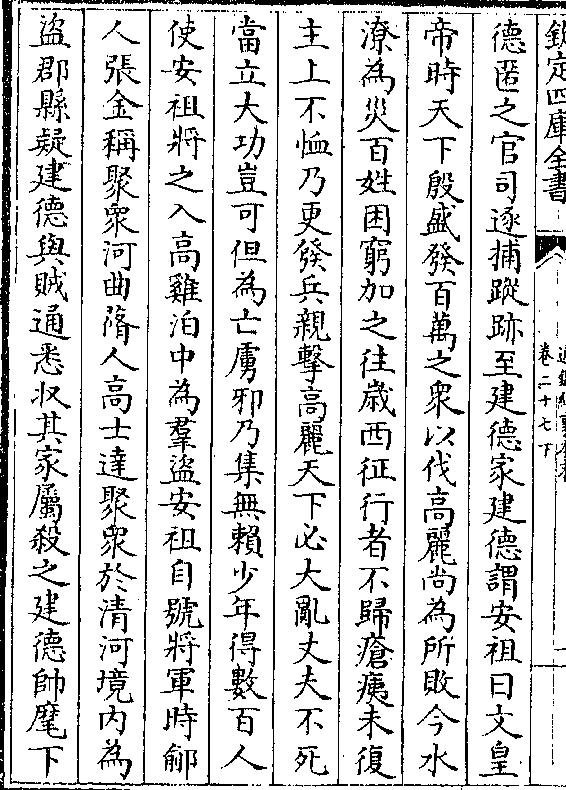 欽定四庫全書
通鑑紀事本末
卷二十七下
德匿之官司逐捕蹤跡至建德家建德謂安祖曰文皇
帝時天下殷盛發百萬之衆以伐高麗尚為所敗今水
潦為災百姓困窮加之往歲西征行者不歸瘡痍未復
主上不恤乃更發兵親擊高麗天下必大亂丈夫不死
當立大功豈可但為亡虜邪乃集無賴少年得數百人
使安祖將之入高雞泊中為羣盜安祖自號將軍時鄃
人張金稱聚衆河曲蓨人高士達聚衆於清河境內為
盜郡縣疑建德與賊通悉収其家屬殺之建德帥麾下